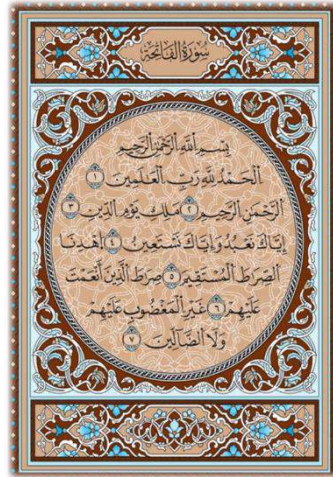 سُورَةُ الفَاتِحَةِ
بِسْمِ اللَّهِ الرَّحْمَٰنِ الرَّحِيمِ
الْحَمْدُ لِلَّهِ رَبِّ الْعَٰلَمِينَ ١
الرَّحْمَٰنِ الرَّحِيمِ ٢ مَلِكِ يَوْمِ الدِّينِ ٣
إِيَّاكَ نَعْبُدُ وَإِيَّاكَ نَسْتَعِينُ ٤ اهْدِنَا
الصِّرَٰطَ الْمُسْتَقِيمَ ٥ صِرَٰطَ الَّذِينَ أَنْعَمْتَ
عَلَيْهِمْ ٦ غَيْرِ الْمَغْضُوبِ عَلَيْهِمْ
وَلَا الضَّالِّينَ ٧